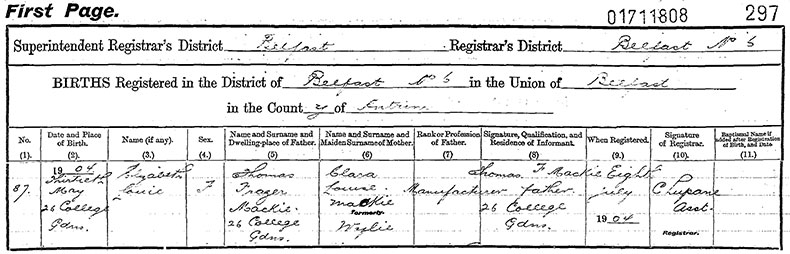 First Page.
01711808
297
Superintendent Registrar's District Belfast
Registrar's District Belfast No 6
BIRTHS Registered in the District of Belfast No 6 in the Union of Belfast
in the County of Antrim
No.
(1).
Date and Place
of Birth.
(2).
Name (if any).
(3.)
Sex.
(4.)
Name and Surname and
Dwelling-place of Father.
(5)
Name and Surname and
Maiden Surname of Mother.
(6)
Rank or Profession
of Father.
(7)
Signature, Qualification, and
Residence of Informant.
(8)
When Registered.
(9.)
Signature
of Registrar.
(10.)
Baptismal Name if
added after Registration
of Birth, and Date
(11.)
87.
1904
Thirtieth
May
26 College
Gdns.
Elizabeth
Louie
F
Thomas
Frazer
Mackie.
26 College
Gdns.
Clara
Louise
Mackie
Formerly
Wylie
Manufacturer
Thomas F Mackie
father.
26 College
Gdns.
Eight
July
1904
Asst.
Registrar.